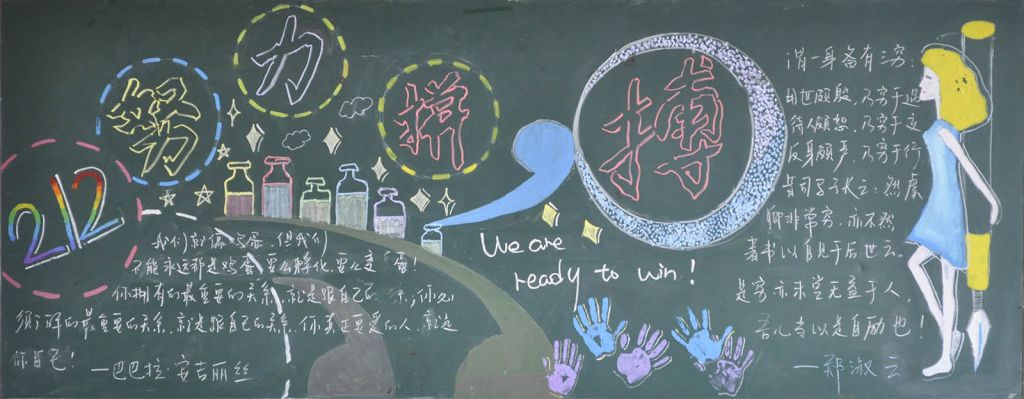 努
力
拼
搏
212
我们就像鸡蛋,但我们
不能永远都是鸡蛋,要么孵化,要么变 蛋!
你拥有的最重要的关系,就是跟自己的 系,你必
须了解的最重要的关系,就是跟自己的关系,你真正要爱的人,就是
你自己!
—巴巴拉·安吉丽丝
We are
ready to win!
谓一身备有三穷:
用世颇殷,乃穷于遇
待人颇恕,乃穷于交
反身颇严,乃穷于行
昔司马子长云:然虞
卿非 穷.亦不
著书以自见于后世云.
是穷亦未尝无益于人,
吾 当以是自励也!
—郑淑云